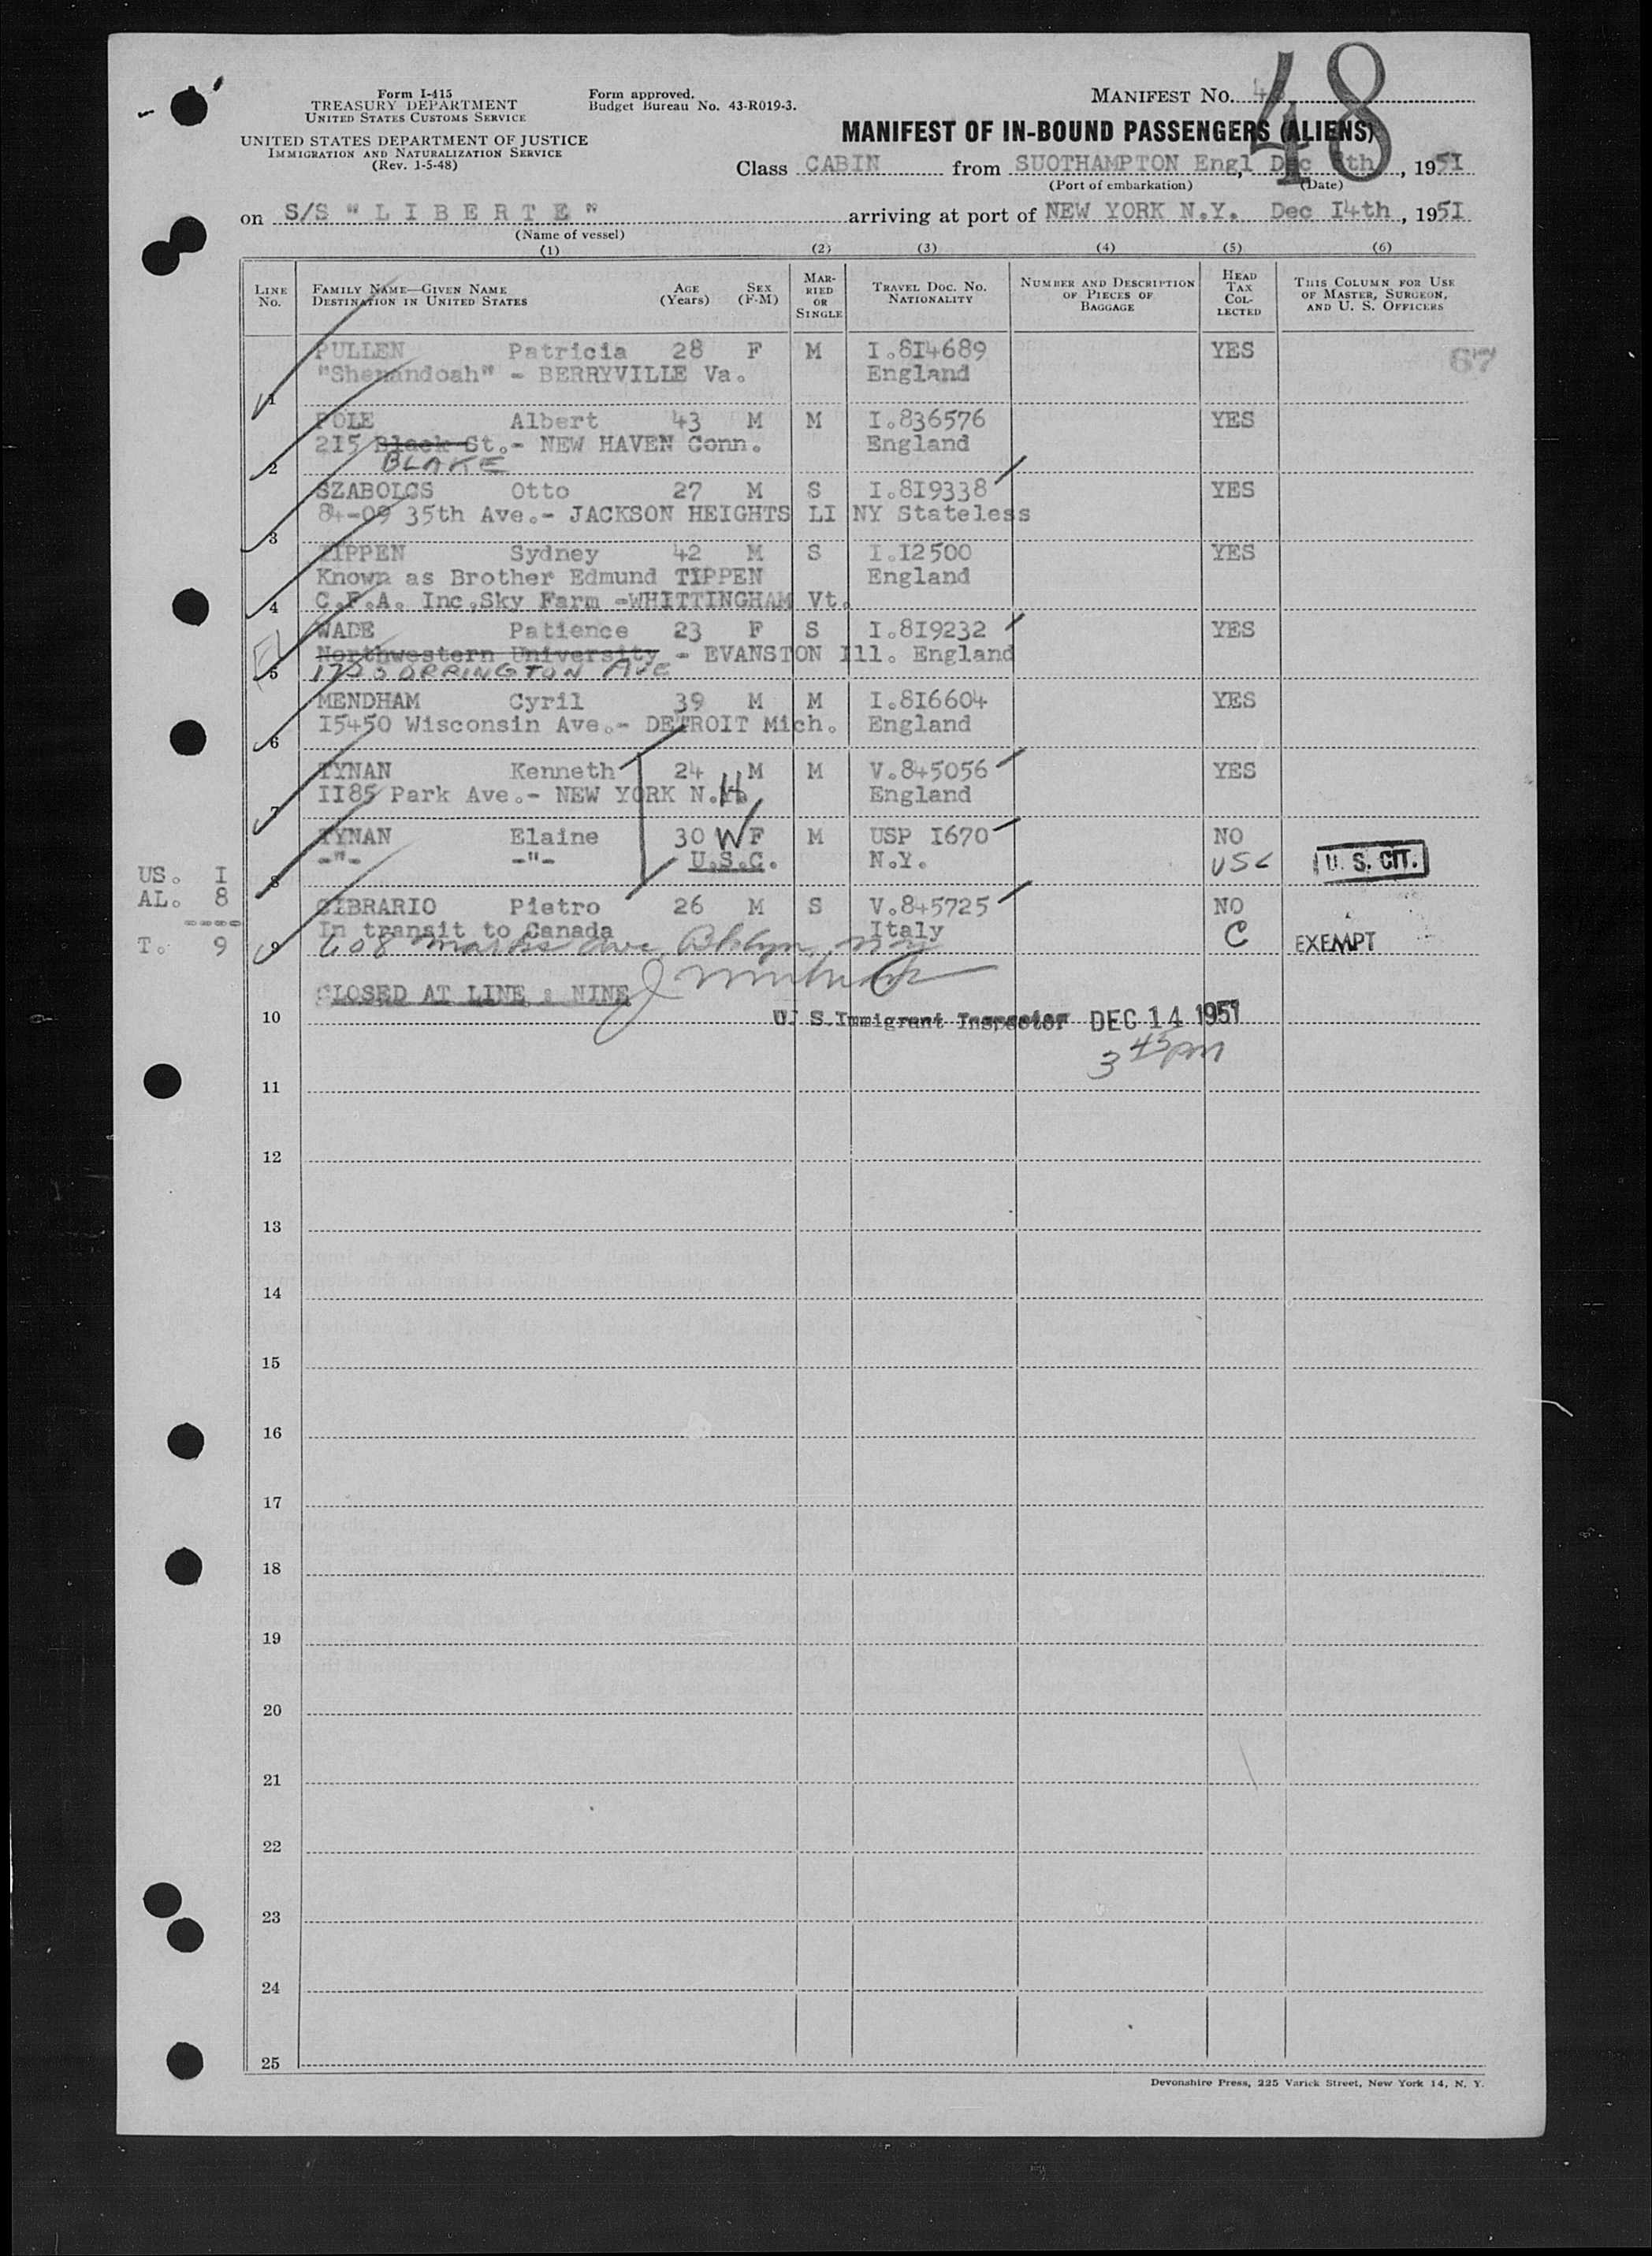 Form I-415
TREASURY DEPARTMENT
UNITED STATES CUSTOMS SERVICE
UNITED STATES DEPARTMENT OF JUSTICE
IMMIGRATION AND NATURALIZATION SERVICE
(Rev. 1-5-48)
Form approved.
Budget Bureau No. 43-R019-3.
MANIFEST No.
48
MANIFEST OF IN-BOUND PASSENGERS (ALIENS)
Class CABIN from SUOTHAMPTON Engl, Dec th, 1951
(Port of embarkation) (Date)
on S/S "L I B E R T E" arriving at port of NEW YORK N.Y. Dec I4th, 195I
(Name of vessel)
(1) (2) (3) (4) (5) (6)
LINE No. FAMILY NAME—GIVEN NAME DESTINATION IN UNITED STATES AGE (Years) SEX (F-M) MARRIED OR SINGLE TRAVEL DOC. NO. NATIONALITY NUMBER AND DESCRIPTION OF PIECES OF BAGGAGE HEAD TAX COLLECTED THIS COLUMN FOR USE OF MASTER, SURGEON, AND U. S. OFFICERS
PULLEN Patricia 28 F M I.8I4689 YES 67
"Shenandoah" - BERRYVILLE Va. England
1
POLE Albert 43 M M I.836576 YES
2I5 Black St.- NEW HAVEN Conn. England
2 BLAKE
SZABOLCS Otto 27 M S I.8I9338 YES
84-09 35th Ave.- JACKSON HEIGHTS LI NY Stateless
3
TIPPEN Sydney 42 M S I.I2500 YES
Known as Brother Edmund TIPPEN England
4 C.F.A. Inc.Sky Farm -WHITTINGHAM Vt.
WADE Patience 23 F S I.8I9232 YES
Northwestern University - EVANSTON Ill. England
5 ORRINGTON AVE
MENDHAM Cyril 39 M M I.8I6604 YES
I5450 Wisconsin Ave.- DETROIT Mich. England
6
TYNAN Kenneth 24 M M V.845056 YES
II85 Park Ave.- NEW YORK N.Y. H England
7
TYNAN Elaine 30 W F M USP I670 NO
-"- -"- U.S.C. N.Y. USC U. S. CIT.
8
US. I
AL. 8
----
T. 9
GIBRARIO Pietro 26 M S V.845725 NO
In transit to Canada Italy C EXEMPT
9 608 Ave Bklyn, NY
CLOSED AT LINE : NINE
10 U. S. Immigrant Inspector DEC 14 1951
3 45 PM
11
12
13
14
15
16
17
18
19
20
21
22
23
24
25
Devonshire Press, 225 Varick Street, New York 14, N. Y.